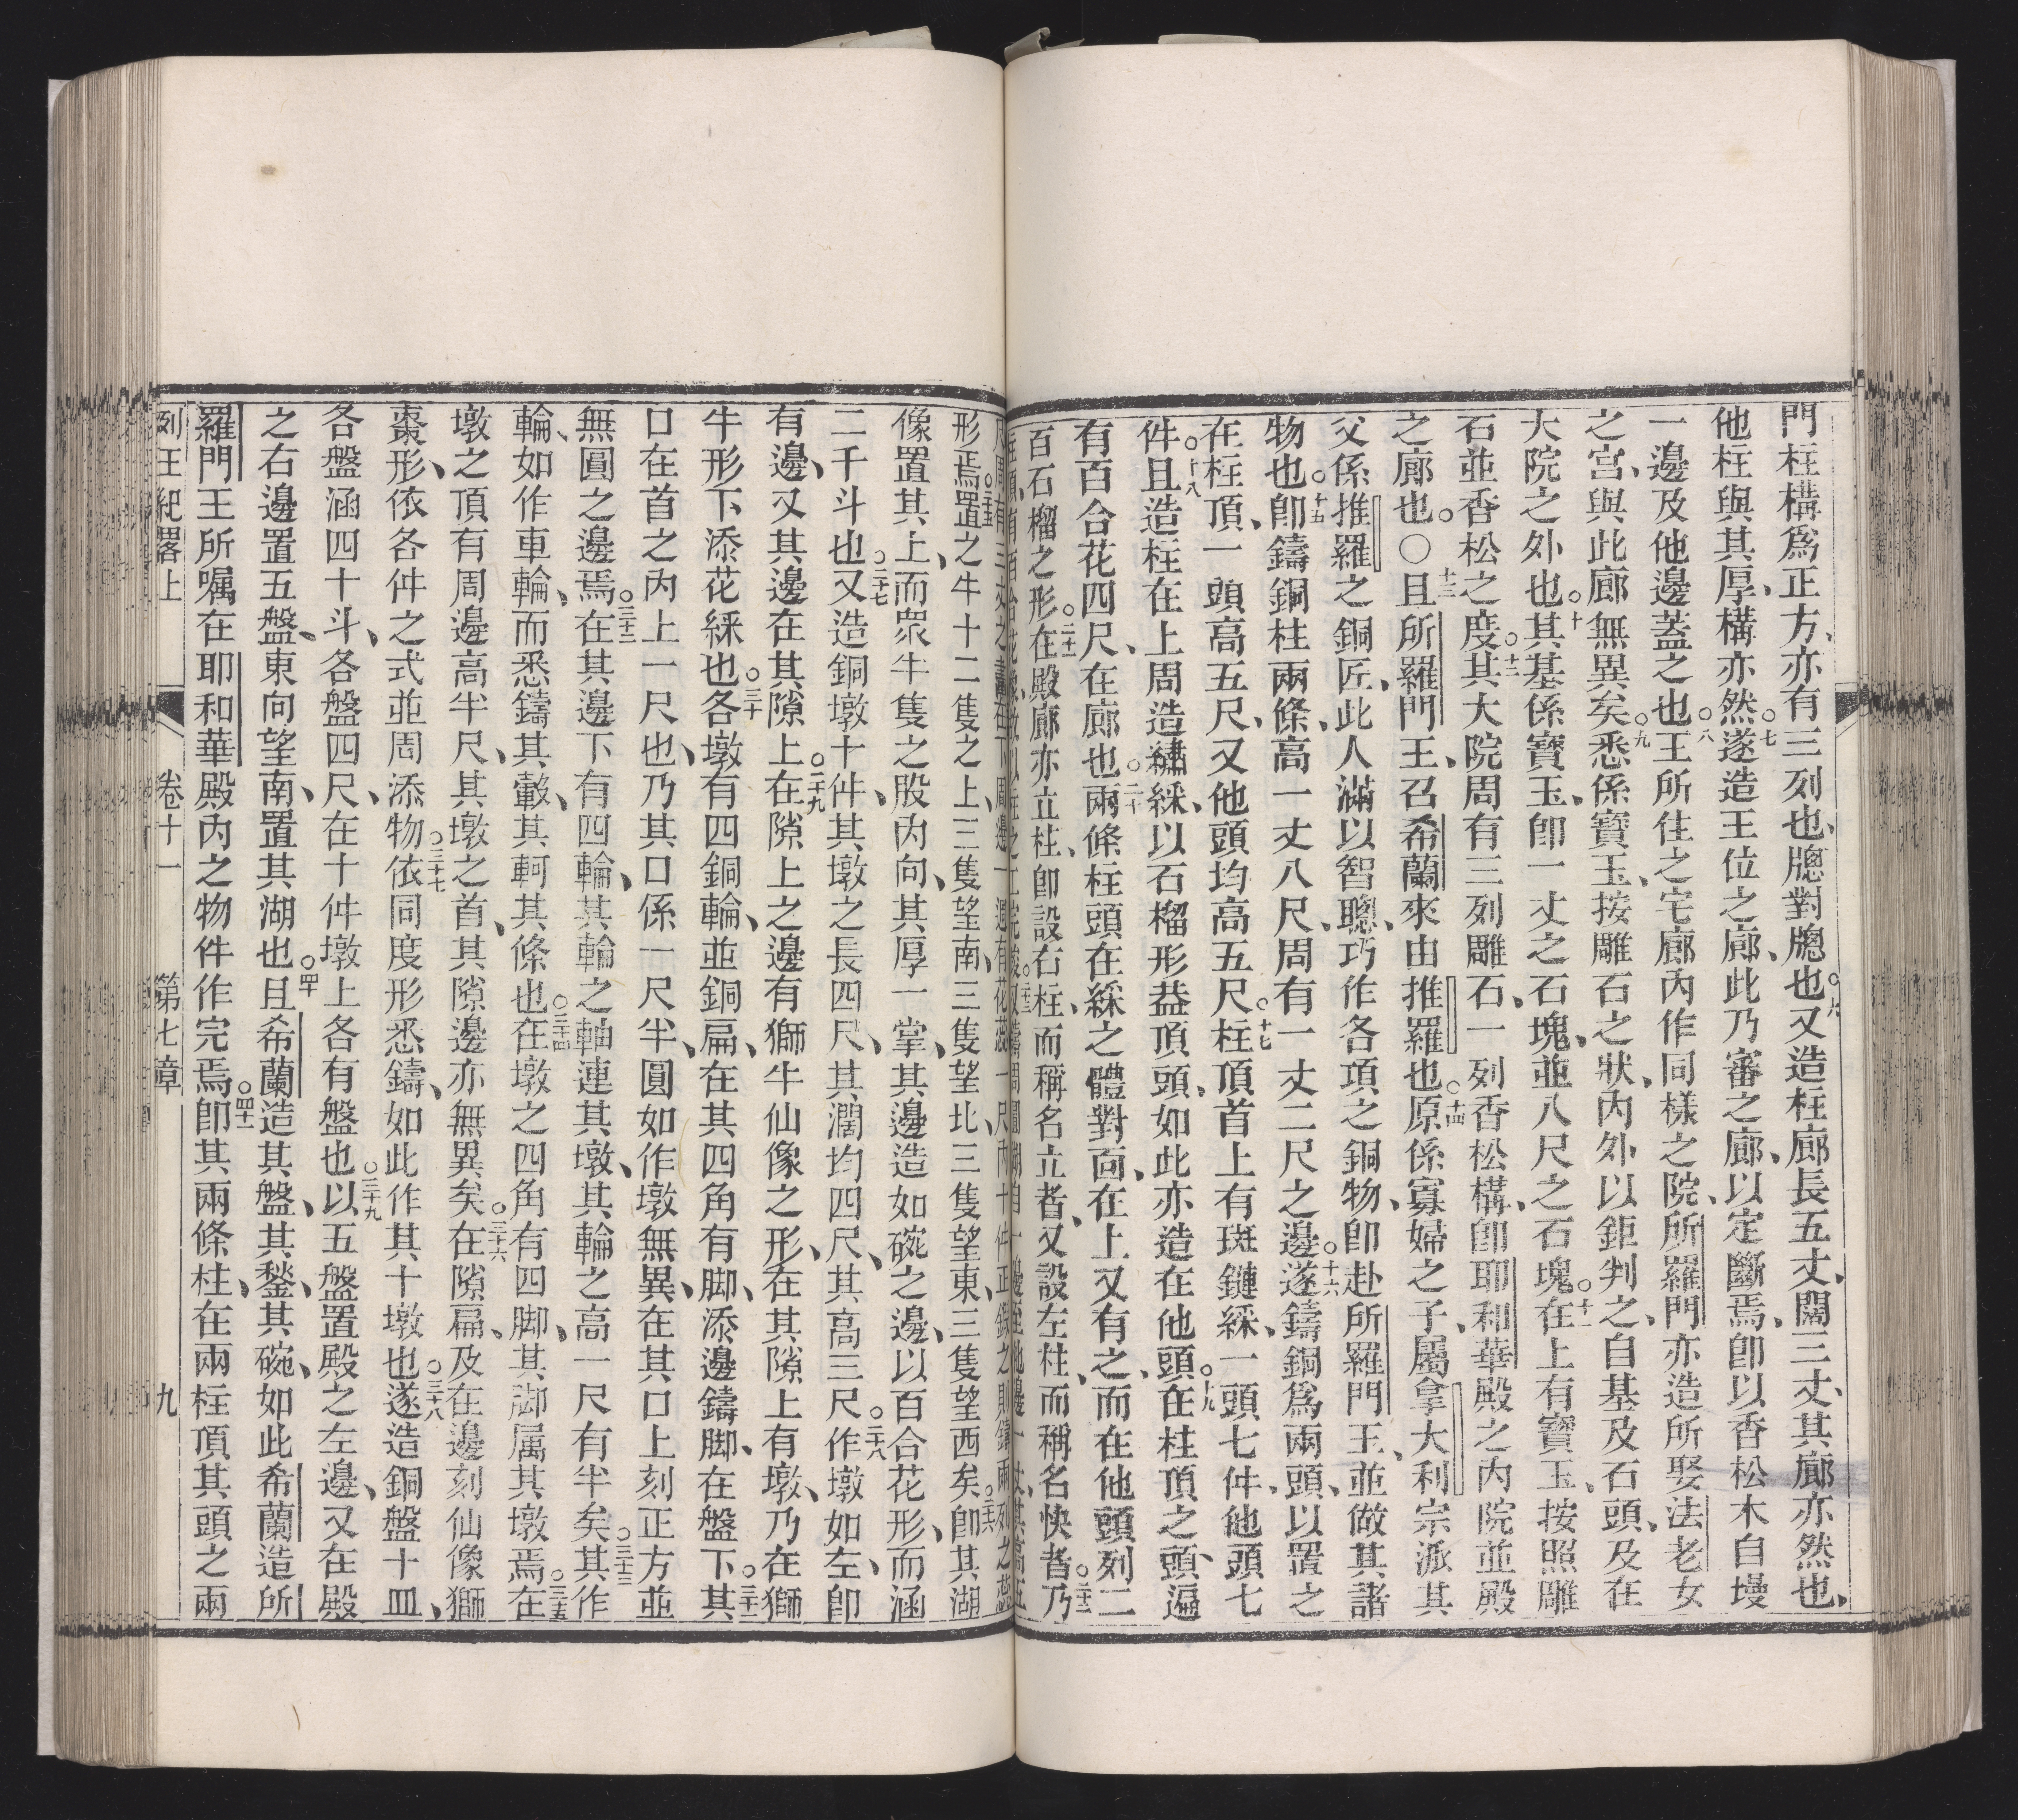 門柱構爲正方、亦有三列也、牕對牕也。六又造柱廊長五丈、闊三丈、其廊亦然也、
他柱與其厚、構亦然。七遂造王位之廊、此乃審之廊、以定斷焉、卽以香松木自墁
一邊及他邊蓋之也。八王所住之宅廊內作同樣之院、所羅門亦造所娶法老女
之宮、與此廊無異矣。九悉係寶玉、按雕石之狀、內外以鉅判之、自基及石頭、及在
大院之外也。十其基係寶玉、卽一丈之石塊、並八尺之石塊。十一在上有寶玉、按照雕
石並香松之度。十二其大院周有三列雕石、一列香松構、卽耶和華殿之內院並殿
之廊也。〇十三且所羅門王、召希蘭來由推羅也。十四原係寡婦之子、屬拿大利宗派其
父係推羅之銅匠、此人滿以智聰、巧作各項之銅物、卽赴所羅門王、並做其諸
物也。十五卽鑄銅柱兩條、高一丈八尺、周有一丈二尺之邊。十六遂鑄銅爲兩頭、以置之
在柱頂、一頭高五尺、又他頭均高五尺。十七柱頂首上有斑鏈綵、一頭七件、他頭七
件。十八且造柱在上周造繡綵、以石榴形葢頂頭、如此亦造在他頭。十九在柱頂之頭、遍
有百合花四尺、在廊也。二十兩條柱頭在綵之體對面、在上又有之、而在他頭列二
百石榴之形。二十一在殿廊亦立柱、卽設右柱、而稱名立者、又設左柱、而稱名快者。二十二乃
形焉。二十五置之牛十二隻之上、三隻望南、三隻望北、三隻望東、三隻望西矣。二十六卽其湖
像置其上、而眾牛隻之股內向、其厚一掌、其邊造如碗之邊、以百合花形、而涵
二千斗也。二十七又造銅墩十件、其墩之長四尺、其濶均四尺、其高三尺。二十八作墩如左、卽
有邊、又其邊在其隙上。二十九在隙上之邊有獅牛仙像之形、在其隙上有墩、乃在獅
牛形下添花綵也。三十各墩有四銅輪、並銅扁、在其四角有脚、添邊鑄脚、在盤下。三十一其
口在首之內上一尺也、乃其口係一尺半、圓如作墩無異、在其口上刻正方並
無圓之邊焉。三十二在其邊下有四輪、其輪之軸連其墩、其輪之高一尺有半矣。三十三其作
輪、如作車輪、而悉鑄其轂、其軻其條也。三十四在墩之四角有四脚、其脚属其墩焉。三十五在
墩之頂有周邊高半尺、其墩之首、其隙邊亦無異矣。三十六在隙扁、及在邊刻仙像獅
棗形、依各件之式並周添物。三十七依同度形悉鑄、如此作其十墩也。三十八遂造銅盤十皿、
各盤涵四十斗、各盤四尺、在十件墩上各有盤也。三十九以五盤置殿之左邊、又在殿
之右邊置五盤、東向望南、置其湖也。四十且希蘭造其盤、其鍫、其碗、如此希蘭造所
羅門王所囑在耶和華殿內之物件作完焉。四十一卽其兩條柱、在兩柱頂其頭之兩
列王紀畧上　卷十一　第七章　九